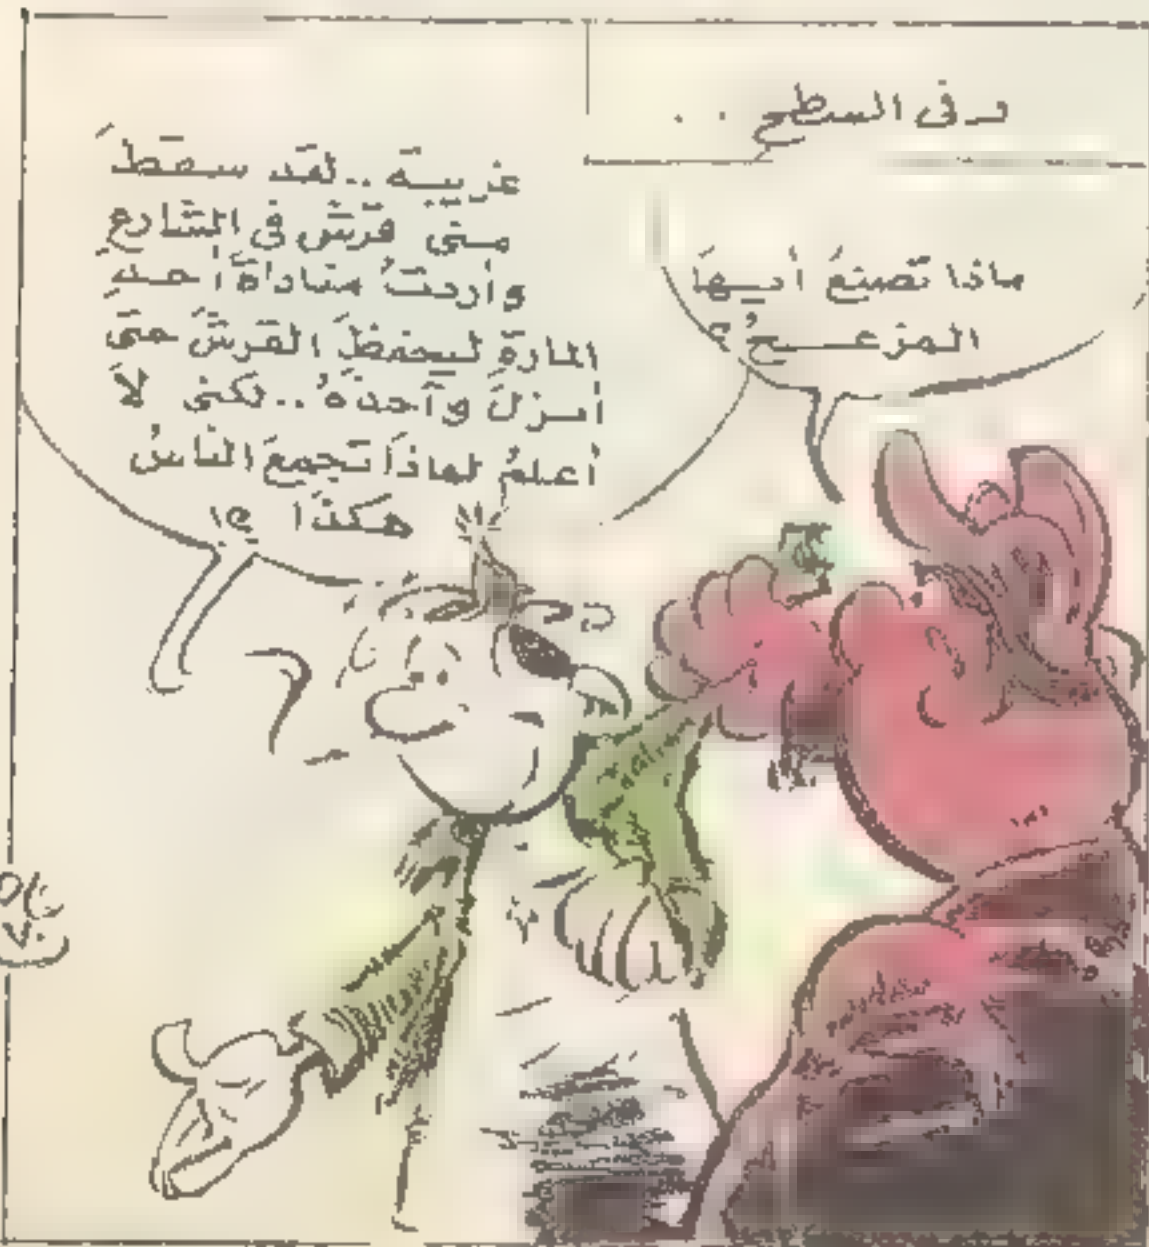 وفى السطح ..
ماذا تصنعُ أيـها
المزعـــجُ ؟
غريبـة .. لقد سقطَ
منى قرش فى الشارع
وأردتُ مناداةَ أحدِ
المارةِ ليحفظَ القرشَ حتىَ
أنـزلَ وآخذهُ .. لكنى لاَ
أعلمُ لماذَا تجمعَ الناسُ
هكذَا ؟!